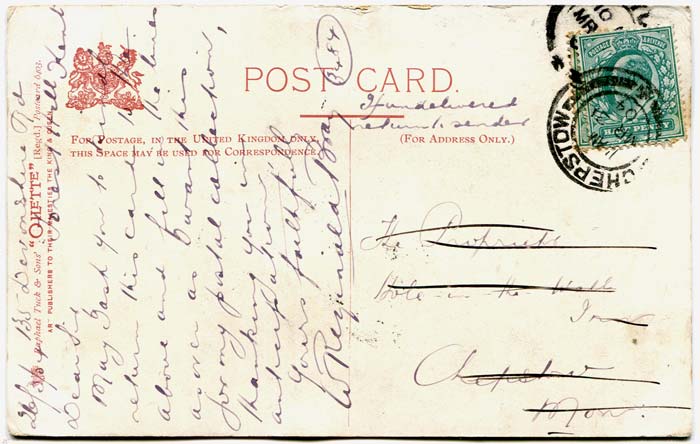 POST CARD.
FOR POSTAGE, IN THE UNITED KINGDOM ONLY,
THIS SPACE MAY BE USED FOR CORRESPONDENCE.
(FOR ADDRESS ONLY.)
Raphael Tuck & Sons' "OILETTE" [Regd.] Postcard 6403.
ART PUBLISHERS TO THEIR MAJESTIES THE KING & QUEEN.
135 Devonshire Rd
Forest Hill Kent
Dear Sir
May I ask you to kindly
return this card to me
above and fill in the lines
as over as I want this
for my postal collection,
thanking you in
anticipation
yours faithfully
W Reginald Bray
3484
If undelivered
return to sender
The Proprietor
Hole in the Wall
Inn
Chepstow
Mon.
POSTAGE
HALF PENNY
CHEPSTOW
MR
04